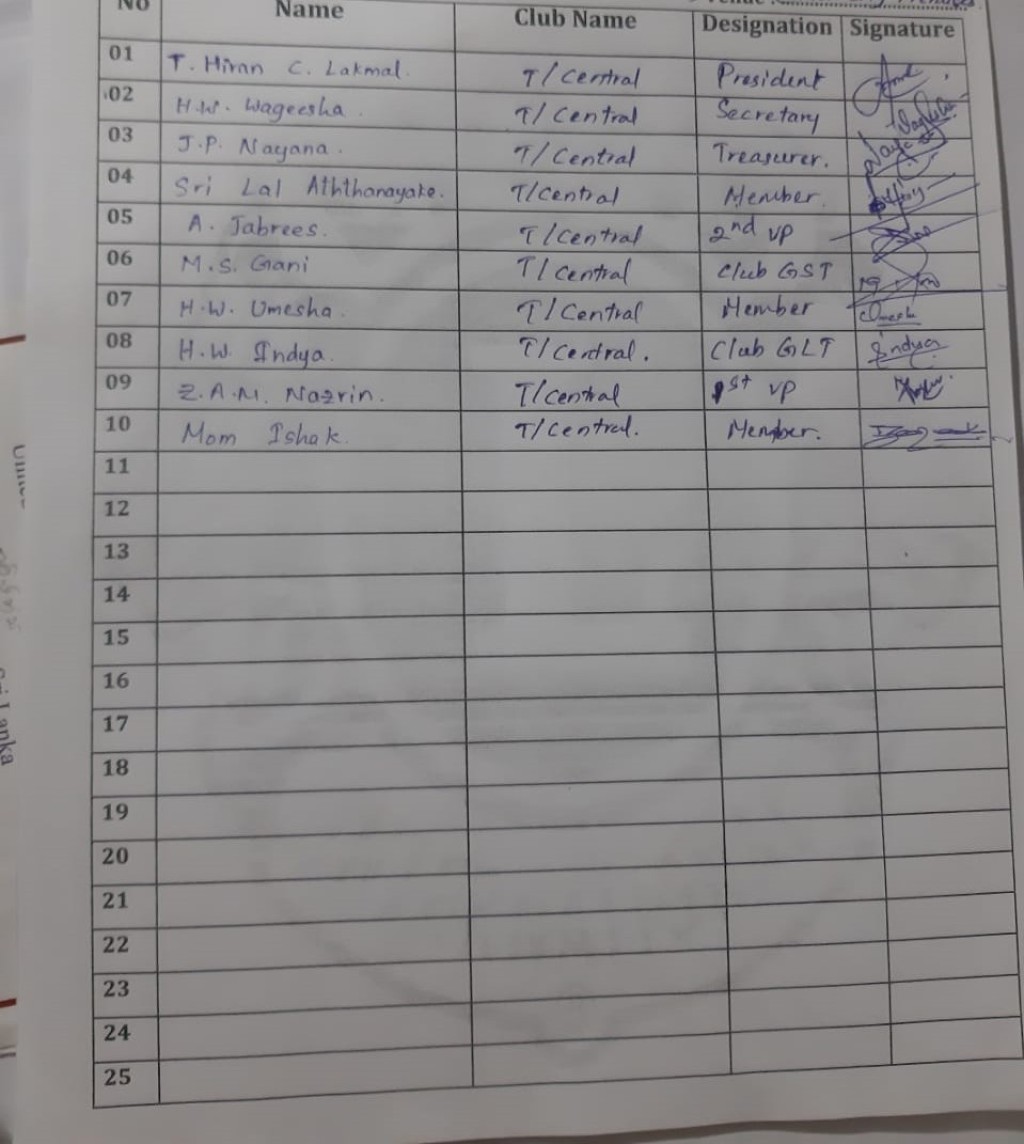 No Name Club Name Designation Signature
01 T. Hiran C. Lakmal. T/Central President
02 H.W. Wageesha. T/Central Secretary
03 J.P. Nayana. T/Central Treasurer.
04 Sri Lal Aththanayake. T/Central Member.
05 A. Jabrees. T/Central 2nd VP
06 M.S. Gani T/Central Club GST
07 H.W. Umesha. T/Central Member Umesh
08 H.W. Indya. T/Central. Club GLT Indya
09 Z.A.M. Nazrin. T/Central 1st VP
10 Mom Ishak. T/Central. Member.
11
12
13
14
15
16
17
18
19
20
21
22
23
24
25
Sri Lanka